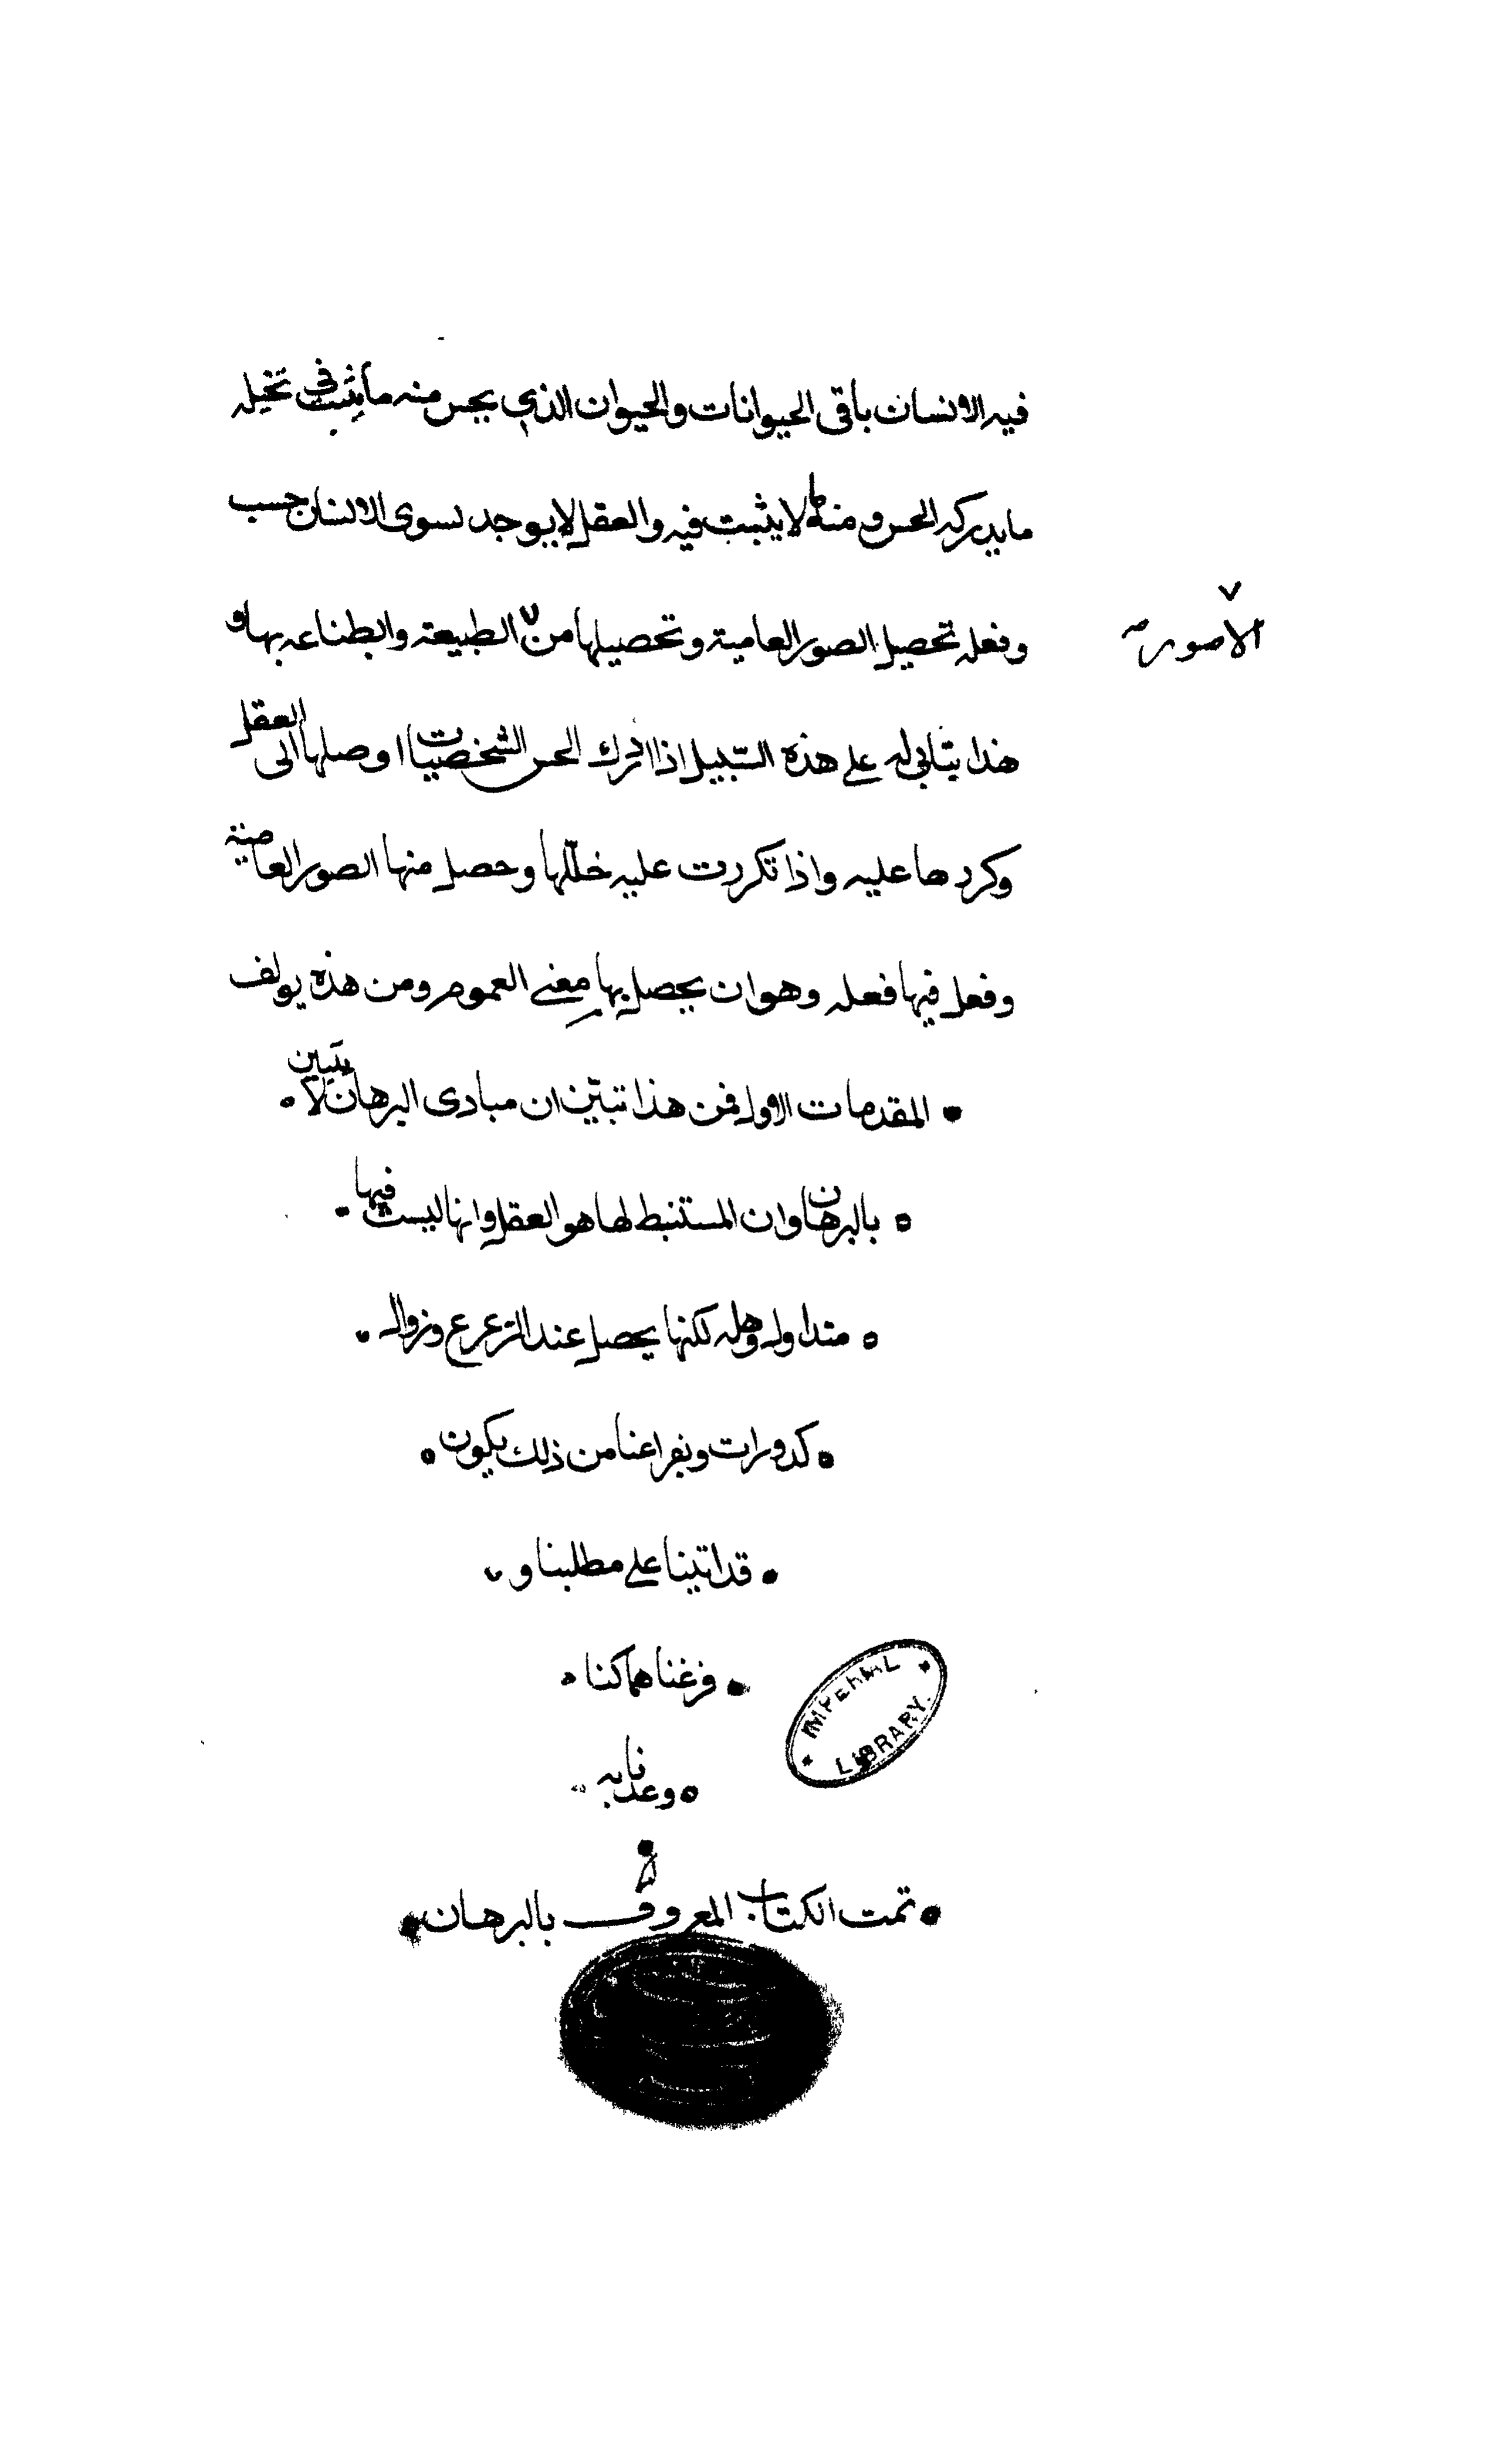 فيه الانسان باقى الحيوانات والحيوان الذي يحس منه ما يثبت في تخيله
ما يدركه الحس ومنه ما لا يثبت فيه والعقل لا يوجد لسوى الانسان حسب
وفعله تحصيل الصور العامية وتحصيلها من الطبيعة وانطباعه بها و
الامور صح
هذا يتأتى له على هذه السبيل اذا ادرك الحس الشخصيات اوصلها الى العقل
وكررها عليه واذا تكررت عليه خللها وحصل منها الصور العامية
وفعل فيها فعله وهو ان يحصل بها معنى العموم ومن هذه يولف
المقدمات الاول فمن هذا تبين ان مبادى البرهان لا يتبين
بالبرهان وان المستنبط لها هو العقل وانها ليست فيها
متداوله وهله لكنها يحصل عند الترعرع وزوال
كدورات وبفراغنا من ذلك يكون
قد اتينا على مطلبنا و
فرغنا مما كنا
وعدنا به
تمت الكتاب المعروف بالبرهان
IMPERIAL LIBRARY.